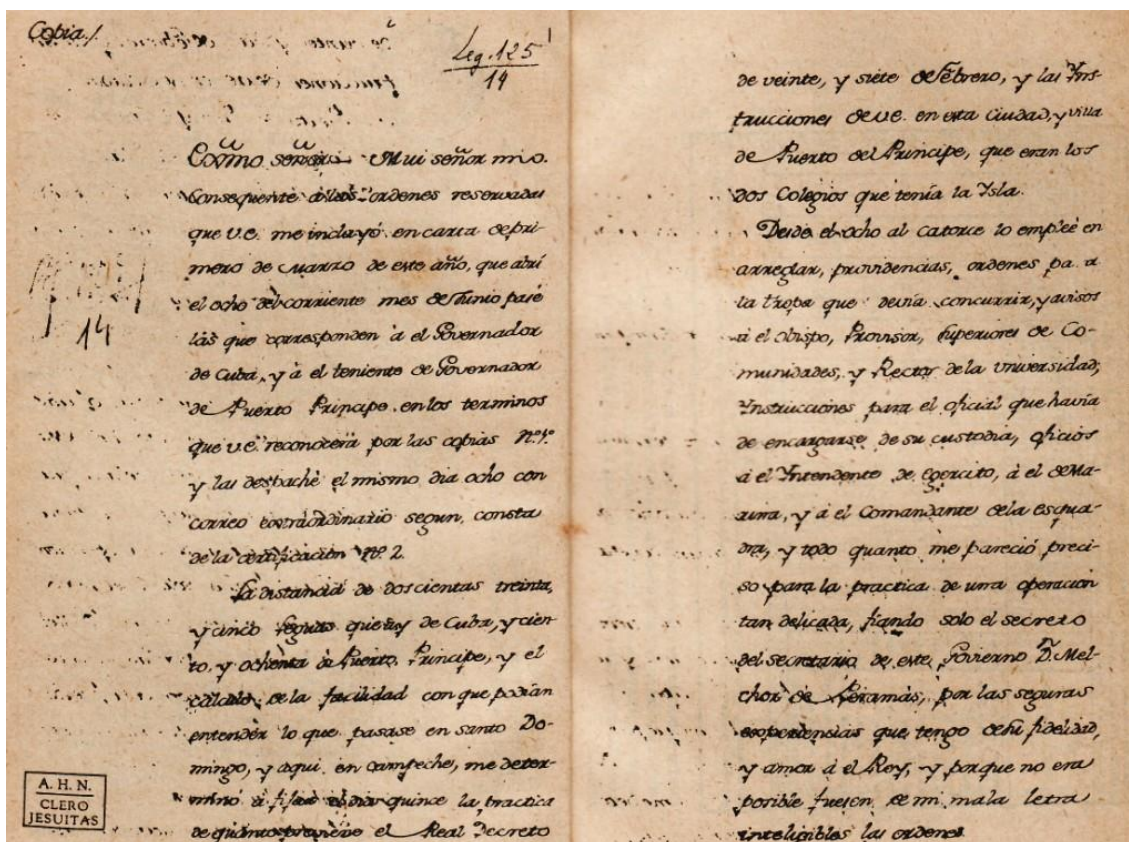 Copia./.
Leg. 125
14
1
Exmo señor Mui señor mio.
Consequente á las ordenes reservadas
que V.E. me incluyó en carta de pri-
mero de Marzo de este año, que abrí
el ocho del corriente mes de Junio pasé
las que corresponden á el Governador
de Cuba, y á el teniente de Governador
de Puerto Principe en los terminos
que V.E. reconocerá por las copias Nº. 1º
y las despaché el mismo dia ocho con
correo extraordinario segun consta
de la certificación Nº. 2.
La distancia de doscientas treinta,
y cinco leguas que ay de Cuba, y cien-
to, y ochenta de Puerto Principe, y el
calculo de la facilidad con que podian
entender lo que pasase en santo Do-
mingo, y aqui en Campeche, me deter-
minó á fijar el dia quince la practica
de quanto previene el Real Decreto
14
A. H. N.
CLERO
JESUITAS
de veinte, y siete de Febrero, y las Yns-
trucciones de V.E. en esta Ciudad, y villa
de Puerto del Principe, que eran los
dos Colegios que tenía la Ysla.
Desde el ocho al catorce lo empleé en
arreglar, providencias, ordenes pa. a
la tropa que devia concurrir, y avisos
á el obispo, Provisor, Superiores de Co-
munidades, y Rector de la Universidad,
Ynstrucciones para el oficial que havía
de encargarse de su custodia, oficios
á el Yntendente de Egercito, á el de Ma-
rina, y á el Comandante de la esqua-
dra, y todo quanto me pareció preci-
so para la practica de una operacion
tan delicada, fiando solo el secreto
del secretario de este Govierno Dn. Mel-
chor de Peramás, por las seguras
experiencias que tengo de su fidelidad,
y amor á el Rey, y porque no era
posible fuesen de mi mala letra
inteligibles las ordenes